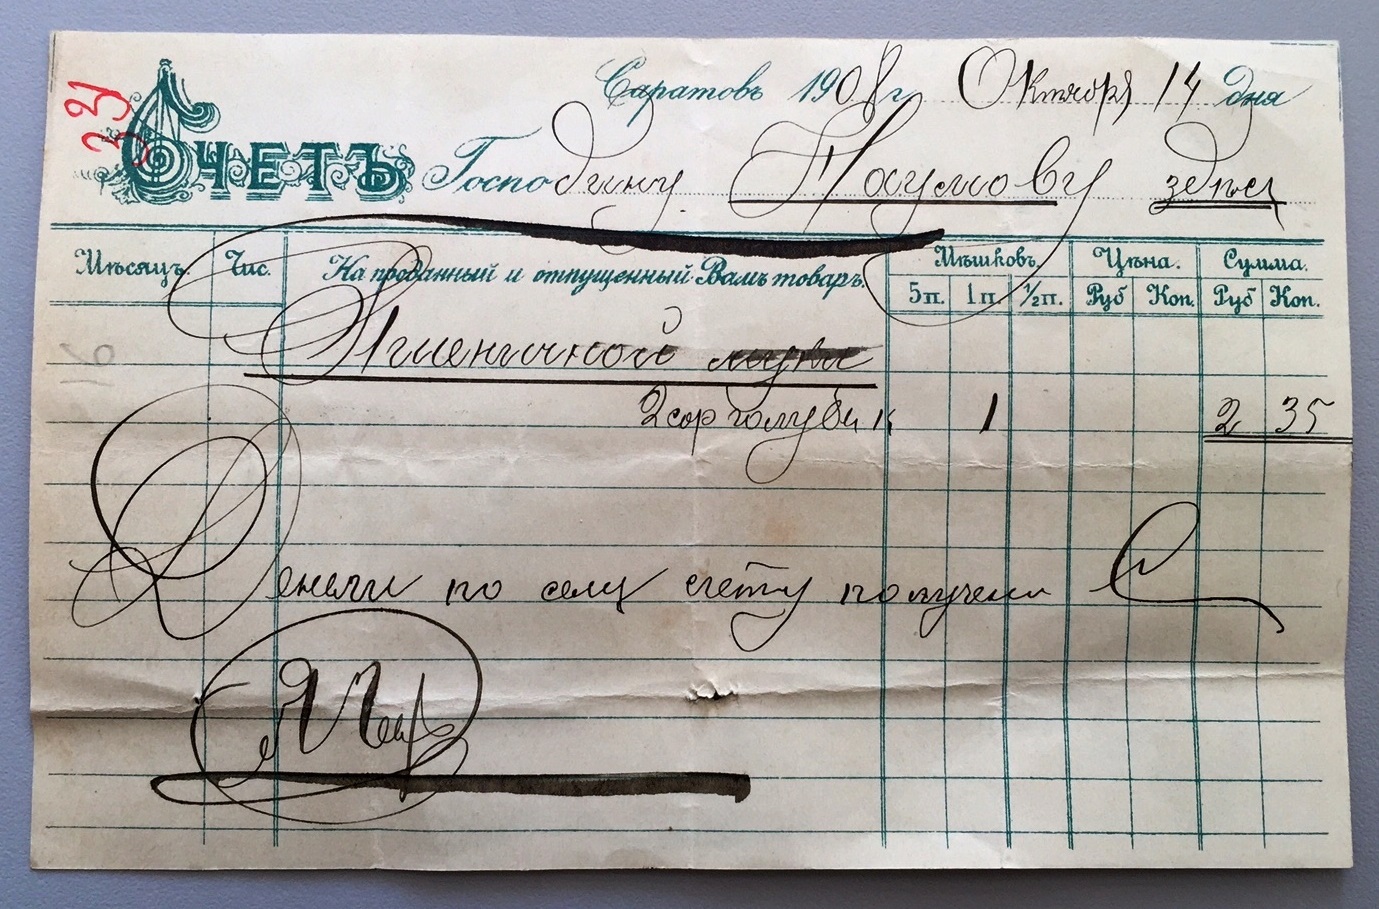 Саратовъ 1908 г. Октября 14 дня
Счетъ Господину Наумову здѣсь
Мѣсяцъ. Чис. На проданный и отпущенный Вамъ товаръ. Мѣшковъ. Цѣна. Сумма.
5 п. 1 п. 1/2 п. Руб Коп. Руб Коп.
Пшеничной муки
2 сор голубой к 1 2 35
Деньги по сему счету получены